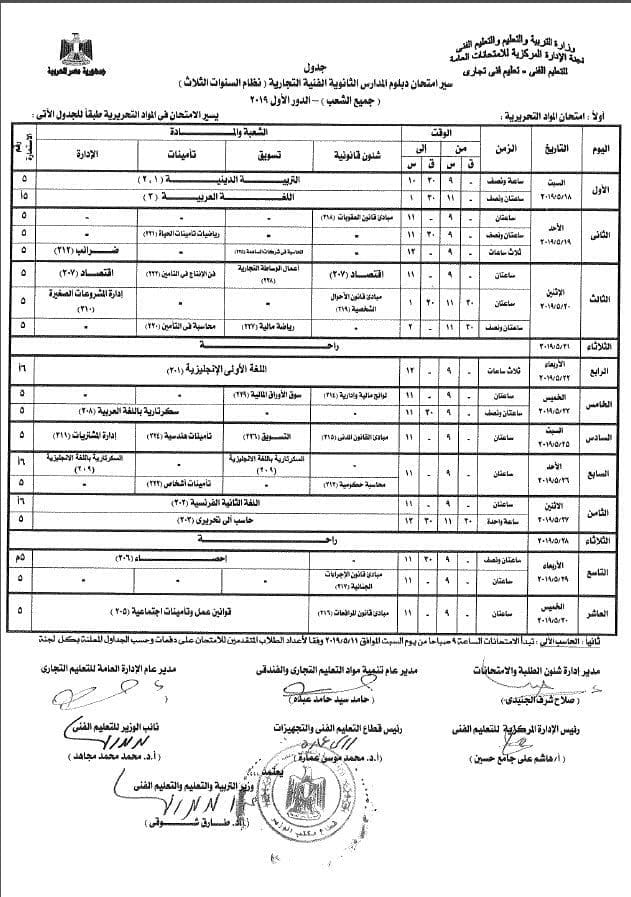 وزارة التربية والتعليم والتعليم الفنى
لجنة الإدارة المركزية للامتحانات العامة
للتعليم الفنى - تعليم فنى تجارى
جمهورية مصر العربية
جدول
سير امتحان دبلوم المدارس الثانوية الفنية التجارية ( نظام السنوات الثلاث )
( جميع الشعب ) - الدور الأول ٢٠١٩
أولاً : امتحان المواد التحريرية : يسير الامتحان فى المواد التحريرية طبقاً للجدول الأتى :
اليوم التاريخ الزمن الوقت الشعبة والمادة رقم الاستمارة
من إلى شئون قانونية تسويق تأمينات الإدارة
ق س ق س
الأول السبت ٢٠١٩/٥/١٨ ساعة ونصف - ٩ ٣٠ ١٠ التربية الدينية (٢،١) ٥
ساعتان ونصف - ١١ ٣٠ ١ اللغة العربية (٣) ١٥
الثانى الأحد ٢٠١٩/٥/١٩ ساعتان - ٩ - ١١ مبادئ قانون العقوبات (٢١٨) - - - ٥
ساعتان ونصف - ٩ ٣٠ ١١ - - رياضيات تأمينات الحياة (٢٢١) - ٥
ثلاث ساعات - ٩ - ١٢ - - ضرائب (٢١٢) ٥
الثالث الإثنين ٢٠١٩/٥/٢٠ ساعتان - ٩ - ١١ اقتصاد (٢٠٧) أعمال الوساطة التجارية (٢٢٨) فن الإنتاج فى التأمين (٢٢٣) اقتصاد (٢٠٧) ٥
ساعتان ٣٠ ١١ ٣٠ ١ مبادئ قانون الأحوال الشخصية (٢١٩) - - إدارة المشروعات الصغيرة (٢١٠) ٥
ساعتان ونصف ٣٠ ١١ - ٢ - رياضة مالية (٢٢٧) محاسبة فى التأمين (٢٢٠) - ٥
الثلاثاء ٢٠١٩/٥/٢١ راحة
الرابع الأربعاء ٢٠١٩/٥/٢٢ ثلاث ساعات - ٩ - ١٢ اللغة الأولى الإنجليزية (٢٠١) ١٦
الخامس الخميس ٢٠١٩/٥/٢٣ ساعتان - ٩ - ١١ لوائح مالية وإدارية (٢١٤) سوق الأوراق المالية (٢٢٩) - - ٥
ساعتان ونصف - ٩ ٣٠ ١١ - - سكرتارية باللغة العربية (٢٠٨) ٥
السادس السبت ٢٠١٩/٥/٢٥ ساعتان - ٩ - ١١ مبادئ القانون المدنى (٢١٥) التسويق (٢٢٦) تأمينات هندسية (٢٢٤) إدارة المشتريات (٢١١) ٥
السابع الأحد ٢٠١٩/٥/٢٦ ساعتان - ٩ - ١١ - السكرتارية باللغة الانجليزية (٢٠٩) - السكرتارية باللغة الانجليزية (٢٠٩) ١٦
محاسبة حكومية (٢١٣) - تأمينات أشخاص (٢٢٢) - ٥
الثامن الاثنين ٢٠١٩/٥/٢٧ ساعتان - ٩ - ١١ اللغة الثانية الفرنسية (٢٠٢) ١٦
ساعة واحدة ٣٠ ١١ ٣٠ ١٢ حاسب الى تحريرى (٢٠٣) ٥
الثلاثاء ٢٠١٩/٥/٢٨ راحة
التاسع الأربعاء ٢٠١٩/٥/٢٩ ساعتان ونصف - ٩ ٣٠ ١١ - إحصاء (٢٠٦) ٥م
ساعتان - ٩ - ١١ مبادئ قانون الإجراءات الجنائية (٢١٧) - - - ٥
العاشر الخميس ٢٠١٩/٥/٣٠ ساعتان - ٩ - ١١ مبادئ قانون المرافعات (٢١٦) قوانين عمل وتأمينات اجتماعية (٢٠٥) ٥
ثانياً : الحاسب الآلى : تبدأ الامتحانات الساعة ٩ صباحا من يوم السبت الموافق ٢٠١٩/٥/١١ وفقا لأعداد الطلاب المتقدمين للامتحان على دفعات وحسب الجداول المعلنة بكل لجنة
مدير إدارة شئون الطلبة والامتحانات مدير عام تنمية مواد التعليم التجارى والفندقى مدير عام الإدارة العامة للتعليم التجارى
( صلاح شرف الجنيدى ) ( حامد سيد حامد عبده )
رئيس الإدارة المركزية للتعليم الفنى رئيس قطاع التعليم الفنى والتجهيزات نائب الوزير للتعليم الفنى
( أ/ هاشم على جامع حسين ) ( أ.د. محمد موسى عمارة ) ( أ.د. محمد محمد مجاهد )
يعتمد ....
وزير التربية والتعليم والتعليم الفنى
( أ.د. طارق شوقى )
قطاع مكتب الوزير